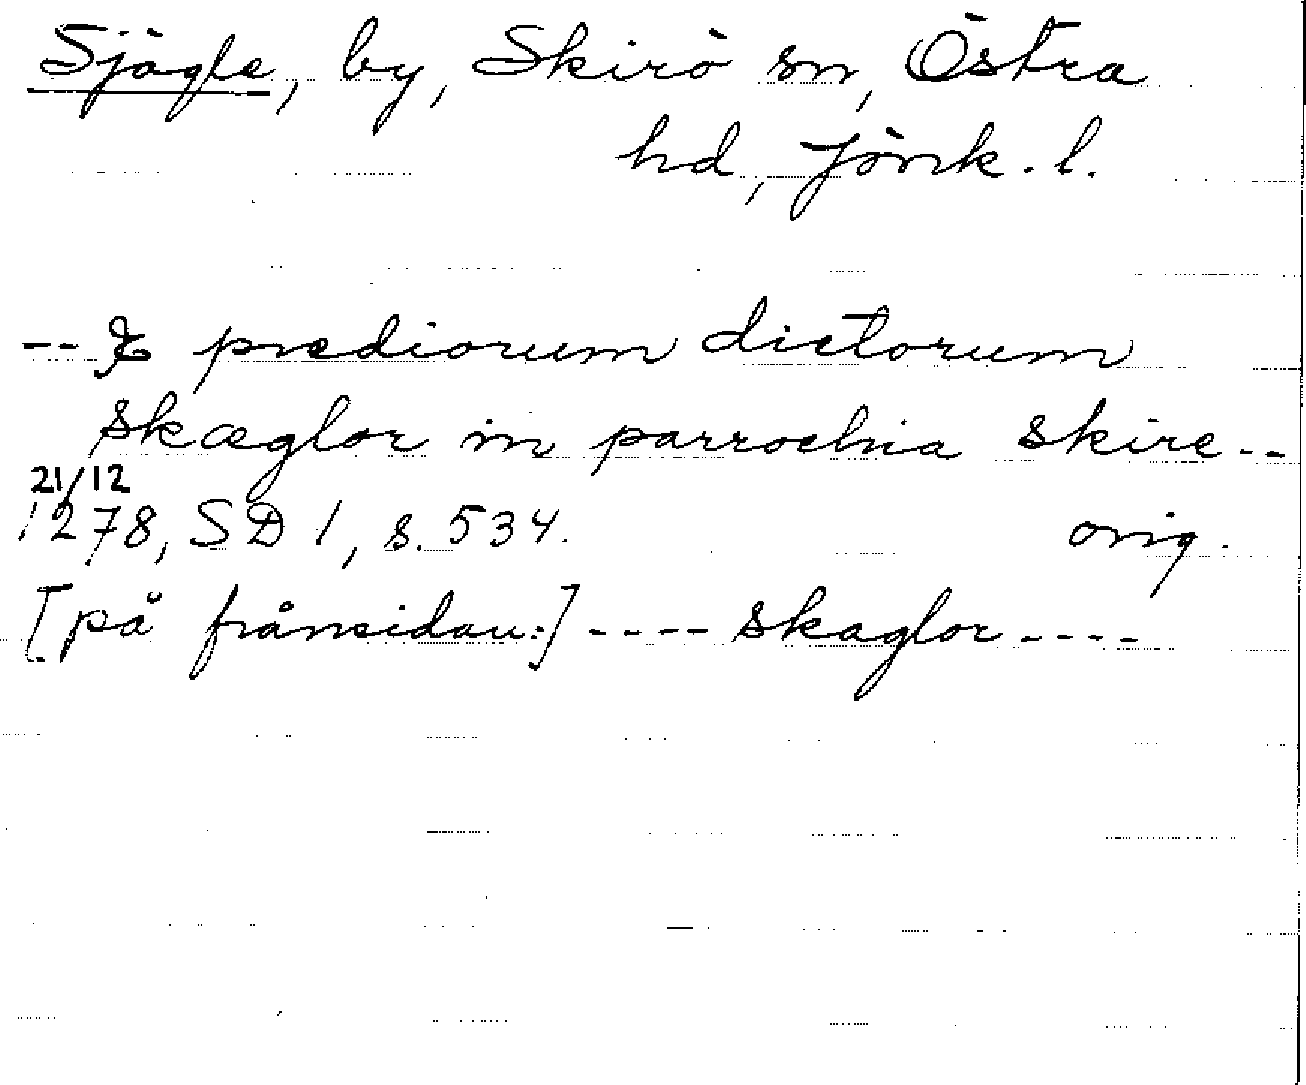 Sjögle, by, Skirö sn, Östra
hd, Jönk. l.
-- & prediorum dictorum
skæglor in parrochia skire --
21/12
1278, SD 1, s. 534. orig.
[på frånsidan:] ---- skaglor ----